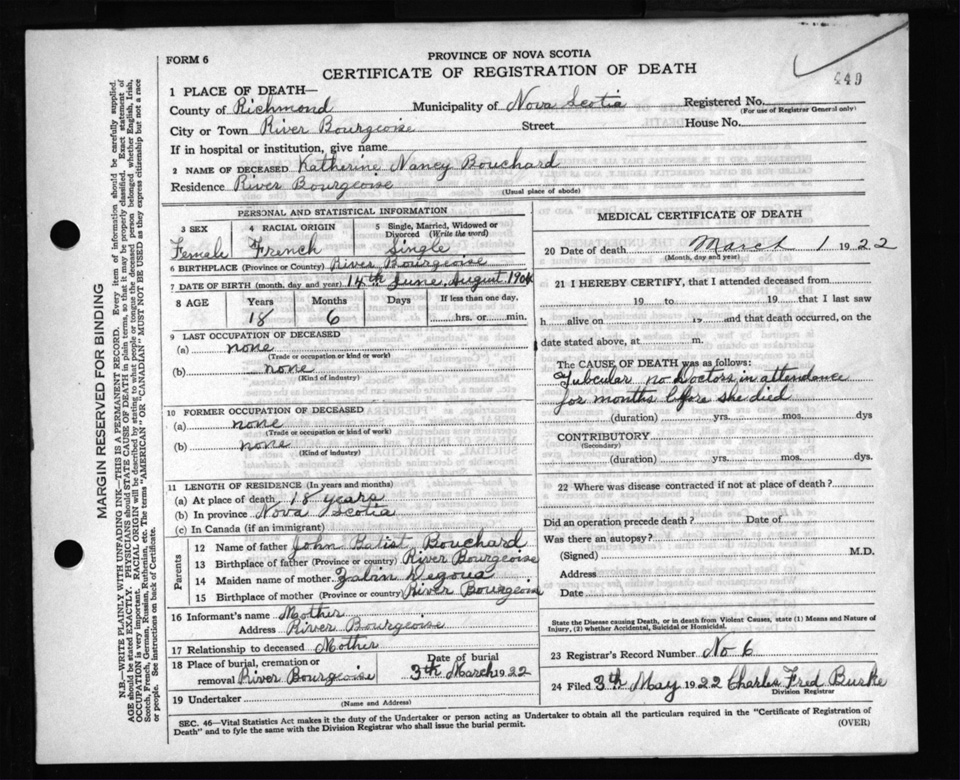 FORM 6
PROVINCE OF NOVA SCOTIA
CERTIFICATE OF REGISTRATION OF DEATH
449
1 PLACE OF DEATH—
County of Richmond Municipality of Nova Scotia Registered No.
(For use of Registrar General only)
City or Town River Bourgeoise Street House No.
If in hospital or institution, give name
2 NAME OF DECEASED Katherine Nancy Bouchard
Residence River Bourgeoise
(Usual place of abode)
PERSONAL AND STATISTICAL INFORMATION
3 SEX 4 RACIAL ORIGIN 5 Single, Married, Widowed or Divorced (Write the word)
Female French Single
6 BIRTHPLACE (Province or Country) River Bourgeoise
7 DATE OF BIRTH (month, day and year) 14th June, August 1904
8 AGE Years Months Days If less than one day,
18 6 hrs. or min.
9 LAST OCCUPATION OF DECEASED
(a) none
(Trade or occupation or kind or work)
(b) none
(Kind of industry)
10 FORMER OCCUPATION OF DECEASED
(a) none
(Trade or occupation or kind of work)
(b) none
(Kind of industry)
11 LENGTH OF RESIDENCE (In years and months)
(a) At place of death 18 years
(b) In province Nova Scotia
(c) In Canada (if an immigrant)
Parents
12 Name of father John Batist Bouchard
13 Birthplace of father (Province or Country) River Bourgeoise
14 Maiden name of mother
15 Birthplace of mother (Province or country) River Bourgeoise
16 Informant's name Mother
Address River Bourgeoise
17 Relationship to deceased Mother
18 Place of burial, cremation or removal River Bourgeoise Date of burial 3th March 1922
19 Undertaker
(Name and Address)
MEDICAL CERTIFICATE OF DEATH
20 Date of death March 1 1922
(Month, day and year)
21 I HEREBY CERTIFY, that I attended deceased from
19 to 19 that I last saw
h alive on 19 and that death occurred, on the
date stated above, at m.
The CAUSE OF DEATH was as follows:
Tubcular no Doctors in attendance
for months before she died
(duration) yrs. mos. dys
CONTRIBUTORY
(Secondary)
(duration) yrs. mos. dys.
22 Where was disease contracted if not at place of death?
Did an operation precede death? Date of
Was there an autopsy?
(Signed) M.D.
Address
Date
State the Disease causing Death, or in death from Violent Causes, state (1) Means and Nature of
Injury, (2) whether Accidental, Suicidal or Homicidal.
23 Registrar's Record Number No 6
24 Filed 3th May 1922 Charles Fred Burke
Division Registrar
SEC. 46—Vital Statistics Act makes it the duty of the Undertaker or person acting as Undertaker to obtain all the particulars required in the "Certificate of Registration of
Death" and to fyle the same with the Division Registrar who shall issue the burial permit.
(OVER)
MARGIN RESERVED FOR BINDING
N.B.—WRITE PLAINLY WITH UNFADING INK—THIS IS A PERMANENT RECORD. Every item of information should be carefully supplied.
AGE should be stated EXACTLY. PHYSICIANS should STATE CAUSE OF DEATH in plain terms, so that it may be properly classified. Exact statement of
OCCUPATION is very important. RACIAL ORIGIN will be described by stating to what people or tongue the deceased person belonged whether English, Irish,
Scotch, French, German, Russian, Ruthenian, etc. The terms "AMERICAN" OR "CANADIAN" MUST NOT BE USED as they express citizenship but not a race
or people. See instructions on back of Certificate.